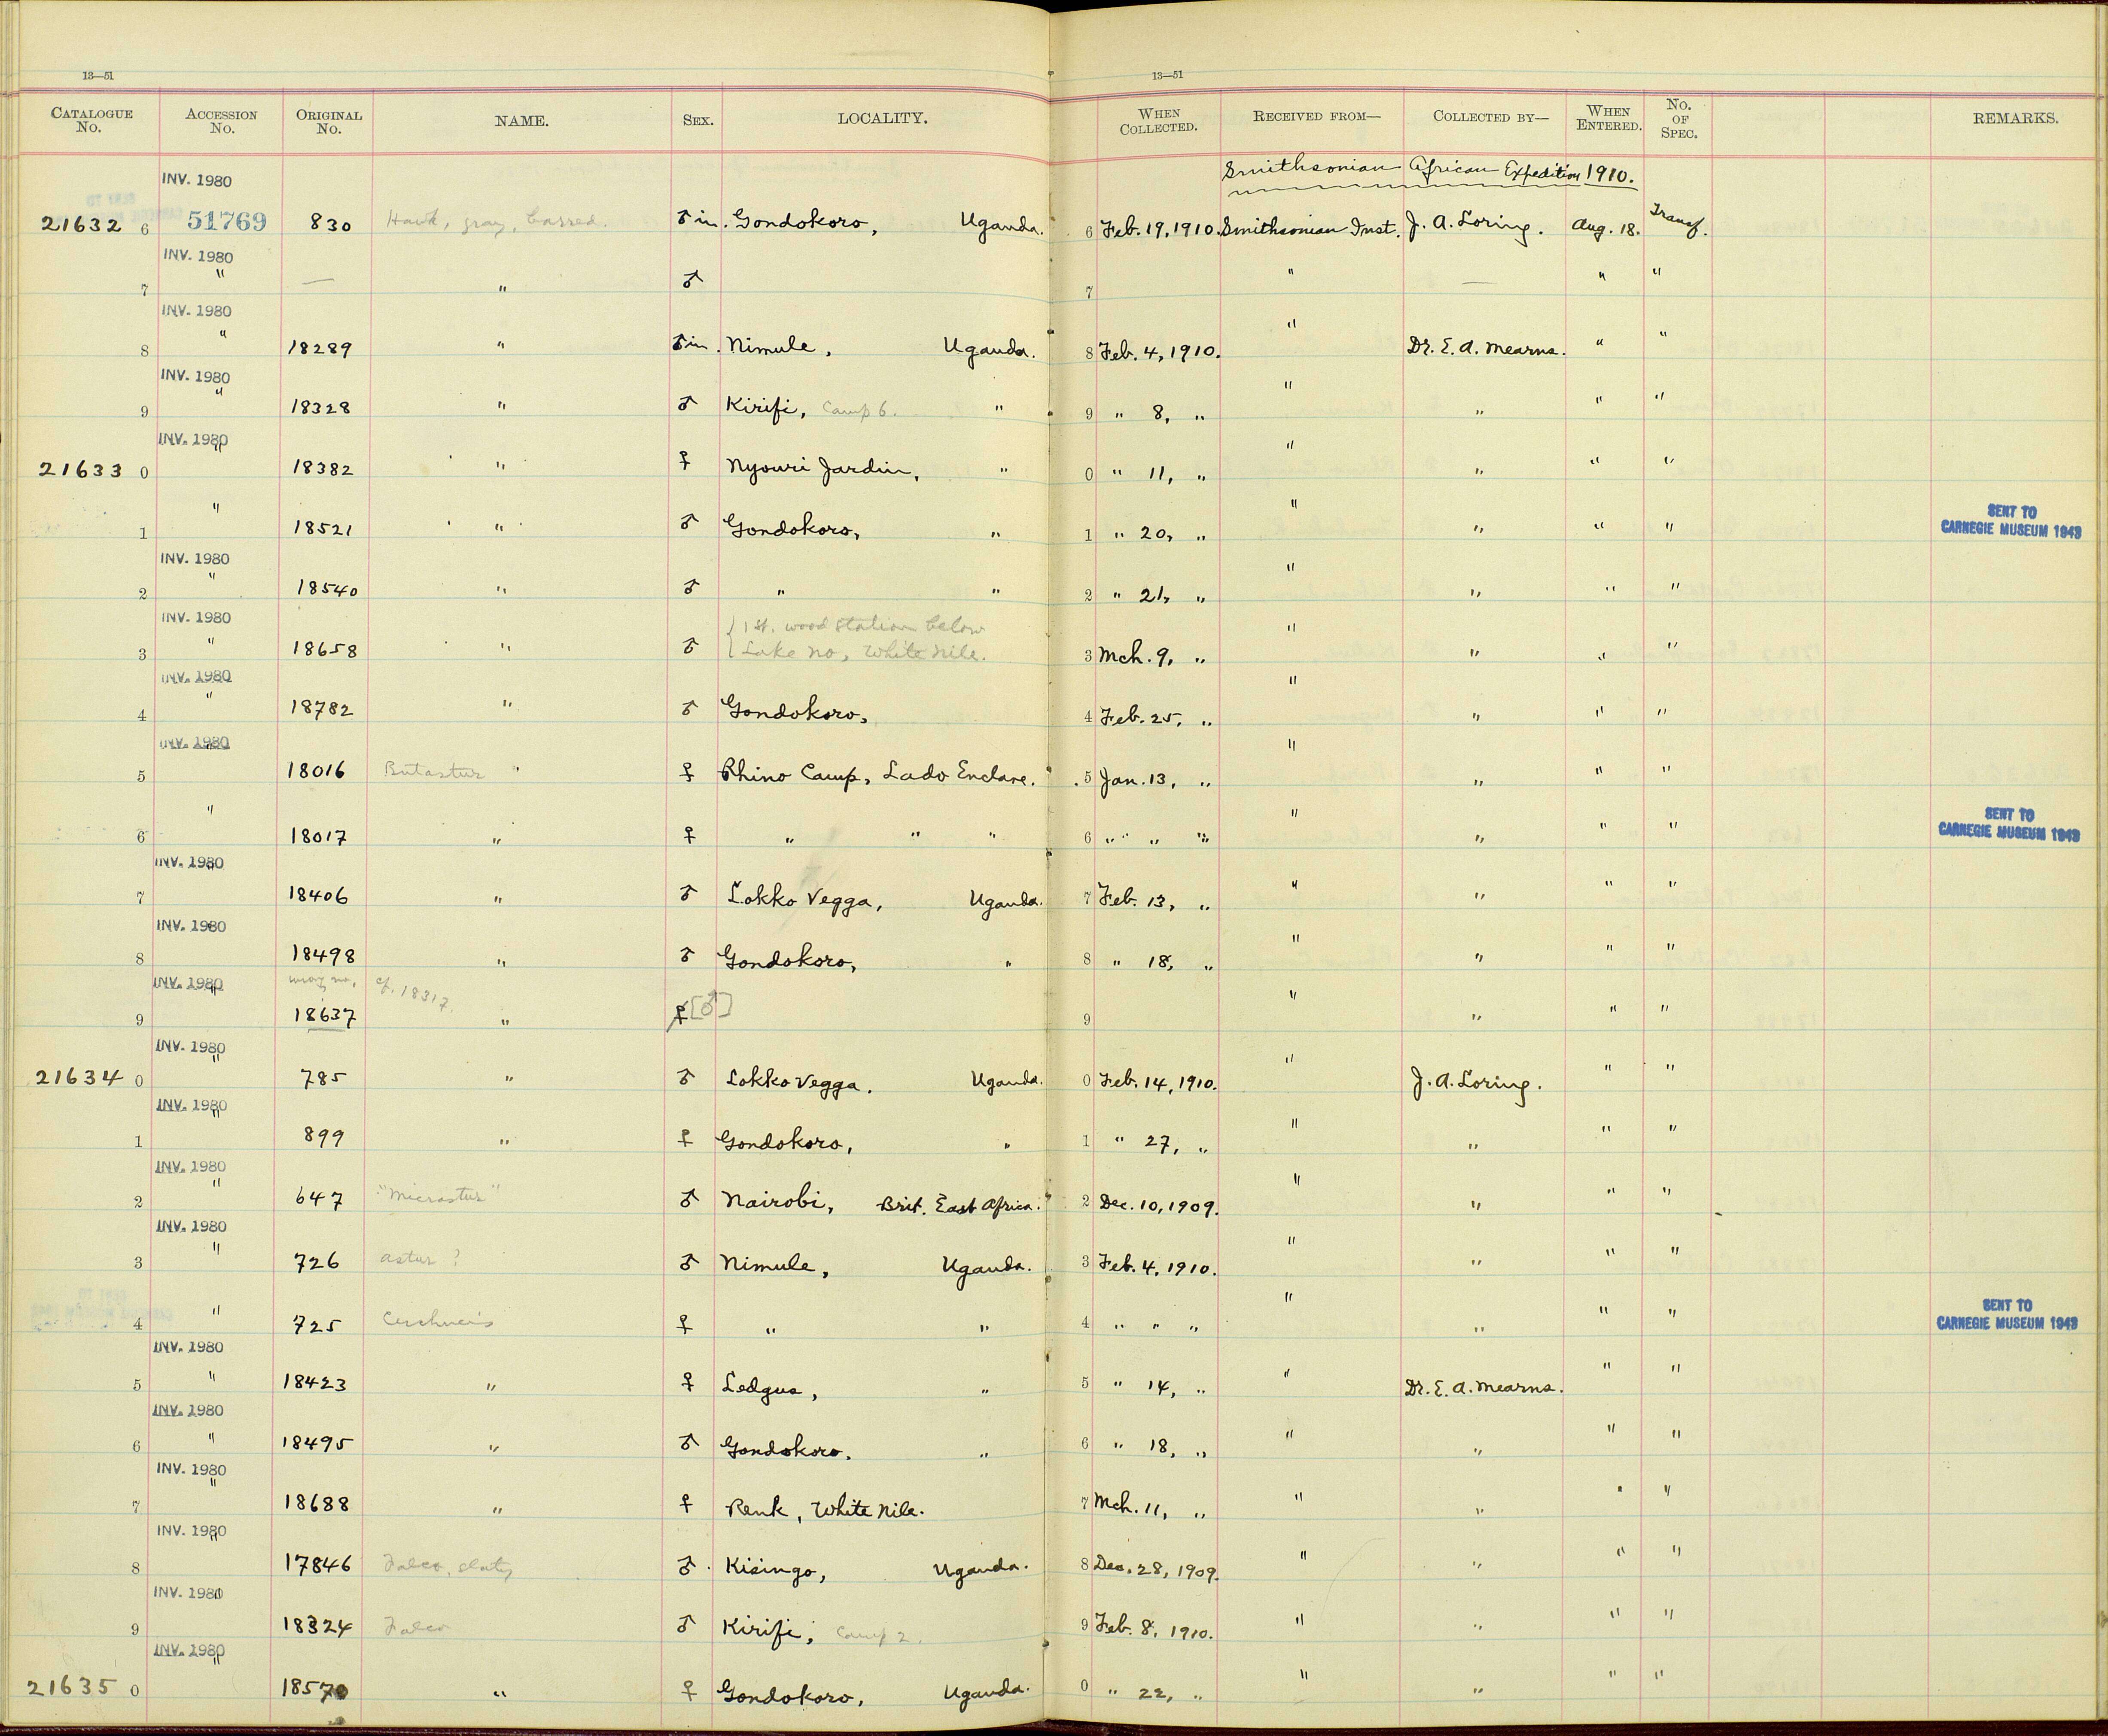 13—51 13—51
CATALOGUE No. ACCESSION No. ORIGINAL No. NAME. SEX. LOCALITY. WHEN COLLECTED. RECEIVED FROM— COLLECTED BY— WHEN ENTERED. No. OF SPEC. REMARKS.
Smithsonian African Expedition 1910.
INV. 1980
21632 6 51769 830 Hawk, gray, barred. ♂ im. Gondokoro, Uganda. 6 Feb. 19, 1910. Smithsonian Inst. J. A. Loring. Aug. 18. Transf.
INV. 1980
7 " — " ♂ 7 " — " "
INV. 1980
8 " 18289 " ♂ im. Nimule, Uganda. 8 Feb. 4, 1910. " Dr. E. A. Mearns. " "
INV. 1980
9 " 18328 " ♂ Kirifi, Camp 6. " 9 " 8, " " " " "
INV. 1980
21633 0 " 18382 " ♀ Nyouri Jardin, " 0 " 11, " " " " "
1 " 18521 " ♂ Gondokoro, " 1 " 20, " " " " " SENT TO CARNEGIE MUSEUM 1943
INV. 1980
2 " 18540 " ♂ " " 2 " 21, " " " " "
INV. 1980
3 " 18658 " ♂ { 1st. wood station below Lake No, White Nile. 3 Mch. 9, " " " " "
INV. 1980
4 " 18782 " ♂ Gondokoro, 4 Feb. 25, " " " " "
INV. 1980
5 " 18016 Butastur " ♀ Rhino Camp, Lado Enclave. 5 Jan. 13, " " " " "
6 " 18017 " ♀ " " " 6 " " " " " " " SENT TO CARNEGIE MUSEUM 1943
INV. 1980
7 " 18406 " ♂ Lokko Vegga, Uganda. 7 Feb. 13, " " " " "
INV. 1980
8 " 18498 " ♂ Gondokoro, " 8 " 18, " " " " "
INV. 1980 wrong no, cf. 18317.
9 " 18637 " ♀ [♂] 9 " " " "
INV. 1980
21634 0 " 785 " ♂ Lokko Vegga. Uganda. 0 Feb. 14, 1910. " J. A. Loring. " "
INV. 1980
1 " 899 " ♀ Gondokoro, " 1 " 27, " " " " "
INV. 1980
2 " 647 "Micrastur" ♂ Nairobi, Brit. East Africa. 2 Dec. 10, 1909. " " " "
INV. 1980
3 " 726 Astur ? ♂ Nimule, Uganda. 3 Feb. 4, 1910. " " " "
4 " 725 Cerchneis ♀ " " 4 " " " " " " " SENT TO CARNEGIE MUSEUM 1943
INV. 1980
5 " 18423 " ♀ Ledgus, " 5 " 14, " " Dr. E. A. Mearns. " "
INV. 1980
6 " 18495 " ♂ Gondokoro. " 6 " 18, " " " " "
INV. 1980
7 " 18688 " ♀ Renk, White Nile. 7 Mch. 11, " " " " "
INV. 1980
8 " 17846 Falco, slaty ♂ Kisingo, Uganda. 8 Dec. 28, 1909. " " " "
INV. 1980
9 " 18324 Falco ♂ Kirifi, Camp 2. 9 Feb. 8, 1910. " " " "
INV. 1980
21635 0 " 18570 " ♀ Gondokoro, Uganda. 0 " 22, " " " " "